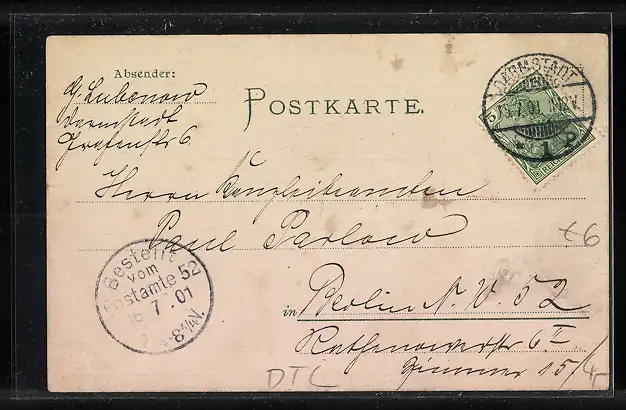 Absender:
G. Lubenow
Darmstadt
Grafenstr 6.
POSTKARTE.
DARMSTADT
15.7.01
* 1 P
5
Herrn Kanzleibeamten
Paul Parlow
in Berlin N. W. 52
Rathenowerstr 6 II
Zimmer 15/
Bestellt
vom
Postamte 52
16 7 . 01
7 - 8¼V.
£6
4,-
DTC